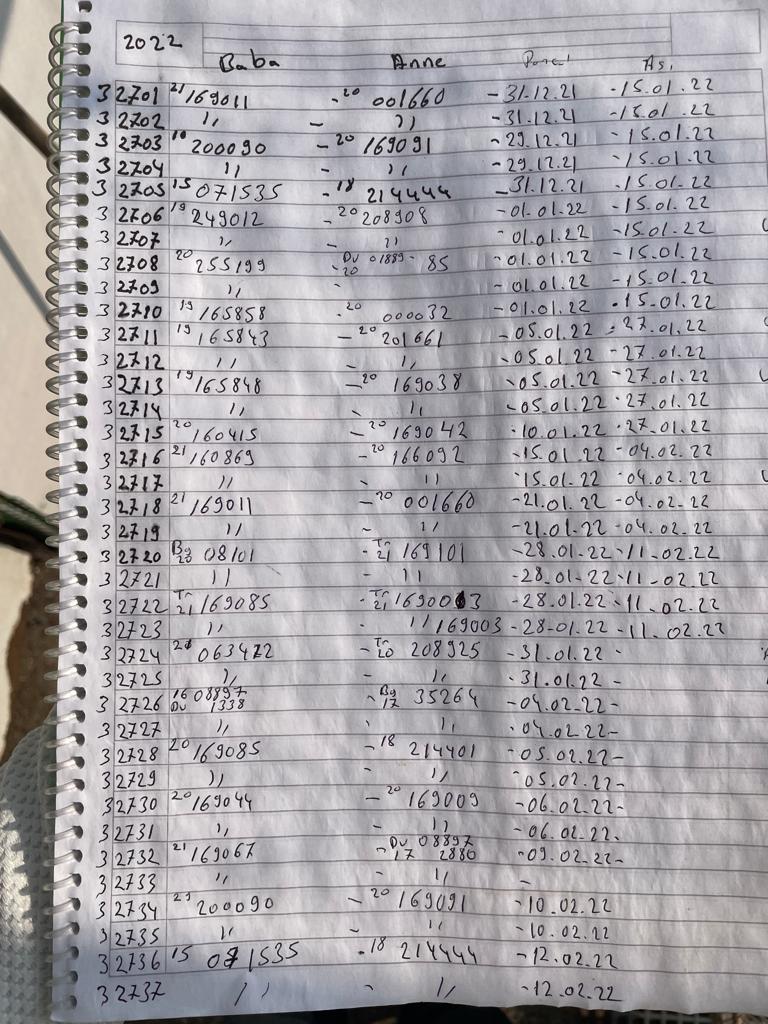 2022
Baba Anne As.
3 2701 21/169011 -20 001660 -31.12.21 -15.01.22
3 2702 ,, - ,, -31.12.21 -15.01.22
3 2703 200090 -20 169091 -29.12.21 -15.01.22
3 2704 ,, - ,, -29.12.21 -15.01.22
3 2705 15 071535 -18 214444 -31.12.21 -15.01.22
3 2706 19 249012 -20 208908 -01.01.22 -15.01.22
3 2707 ,, - ,, -01.01.22 -15.01.22
3 2708 20 255199 -Du 20 01889- 85 -01.01.22 -15.01.22
3 2709 ,, - -01.01.22 -15.01.22
3 2710 19/165858 -20 000032 -01.01.22 -15.01.22
3 2711 19/165843 -20 201661 -05.01.22 -27.01.22
3 2712 ,, - ,, -05.01.22 -27.01.22
3 2713 19/165848 -20 169038 -05.01.22 -27.01.22
3 2714 ,, - ,, -05.01.22 -27.01.22
3 2715 20/160415 -20 169042 -10.01.22 -27.01.22
3 2716 21/160869 -20 166092 -15.01.22 -04.02.22
3 2717 ,, - ,, -15.01.22 -04.02.22
3 2718 21/169011 -20 001660 -21.01.22 -04.02.22
3 2719 ,, - ,, -21.01.22 -04.02.22
3 2720 Bg 20 08101 -Tr 21 169101 -28.01.22 -11.02.22
3 2721 ,, - ,, -28.01.22 -11.02.22
3 2722 Tr 21/169085 -Tr 21 169003 -28.01.22 -11.02.22
3 2723 ,, - ,, 169003 -28.01.22 -11.02.22
3 2724 063472 -Tr 20 208925 -31.01.22 -
3 2725 ,, - ,, -31.01.22 -
3 2726 16 Du 08897 1338 -Bg 17 35264 -04.02.22-
3 2727 ,, - ,, -04.02.22-
3 2728 20/169085 -18 214401 -05.02.22-
3 2729 ,, - ,, -05.02.22-
3 2730 20/169044 -20 169009 -06.02.22-
3 2731 ,, - ,, -06.02.22-
3 2732 21/169067 -Du 17 08897 2880 -09.02.22-
3 2733 ,, - ,, -
3 2734 21 200090 -20 169091 -10.02.22
3 2735 ,, - ,, -10.02.22
3 2736 15 071535 -18 214444 -12.02.22
3 2737 ,, - ,, -12.02.22